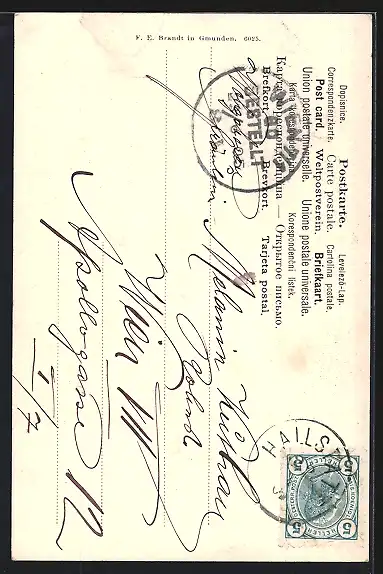 Postkarte.
Dopisnice. Levelező-Lap.
Correspondenzkarte. Carte postale. Cartolina postale.
Post card. Weltpostverein. Briefkaart.
Union postale universelle. Unione postale universale.
Karta korespondencyjna Korespondenční lístek.
— Открытое письмо.
Brefkort. Brevkort. Tarjeta postal.
BESTELLT
Fräulein
Melanie
Wien VII
Apollogasse 12
I/7
HALLS
5 HELLER 5
F. E. Brandt in Gmunden. 6025.